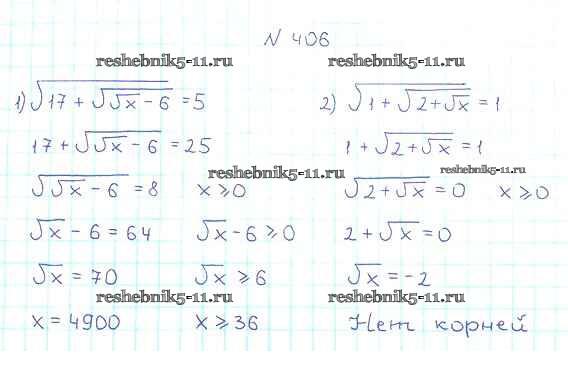 N 406
reshebnik5-11.ru reshebnik5-11.ru
1) √(17 + √(√x − 6)) = 5 2) √(1 + √(2 + √x)) = 1
17 + √(√x − 6) = 25 1 + √(2 + √x) = 1
reshebnik5-11.ru reshebnik5-11.ru
√(√x − 6) = 8 x ⩾ 0 √(2 + √x) = 0 x ⩾ 0
√x − 6 = 64 √x − 6 ⩾ 0 2 + √x = 0
√x = 70 √x ⩾ 6 √x = −2
reshebnik5-11.ru reshebnik5-11.ru
x = 4900 x ⩾ 36 Нет корней